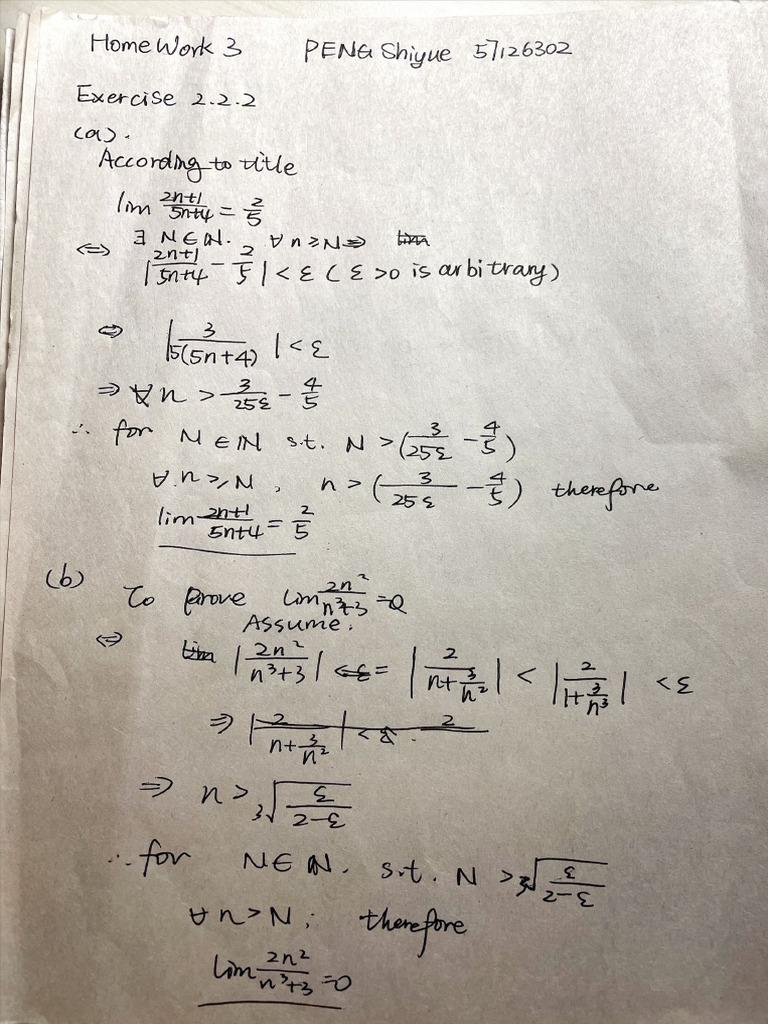 Home Work 3 PENG Shiyue 57126302
Exercise 2.2.2
(a).
According to title
lim 2n+1/5n+4 = 2/5
∃ N∈ℕ. ∀ n≥N ⇒
⇔ |2n+1/5n+4 − 2/5| < ε ( ε >0 is arbitrary)
⇔ |3/5(5n+4)| < ε
⇒ ∀ n > 3/25ε − 4/5
∴ for N∈ℕ s.t. N > (3/25ε − 4/5)
∀ n ≥ N, n > (3/25ε − 4/5) therefore
lim 2n+1/5n+4 = 2/5
(b) To prove lim 2n²/n³+3 = 0
Assume.
⇔ |2n²/n³+3| = |2/n+3/n²| < |2/1+3/n³| < ε
⇒ |2/n+3/n²| < ε. 2
⇒ n > ³√(ε/2−ε)
∴ for N∈ℕ. s.t. N > ³√(ε/2−ε)
∀ n > N; therefore
lim 2n²/n³+3 = 0